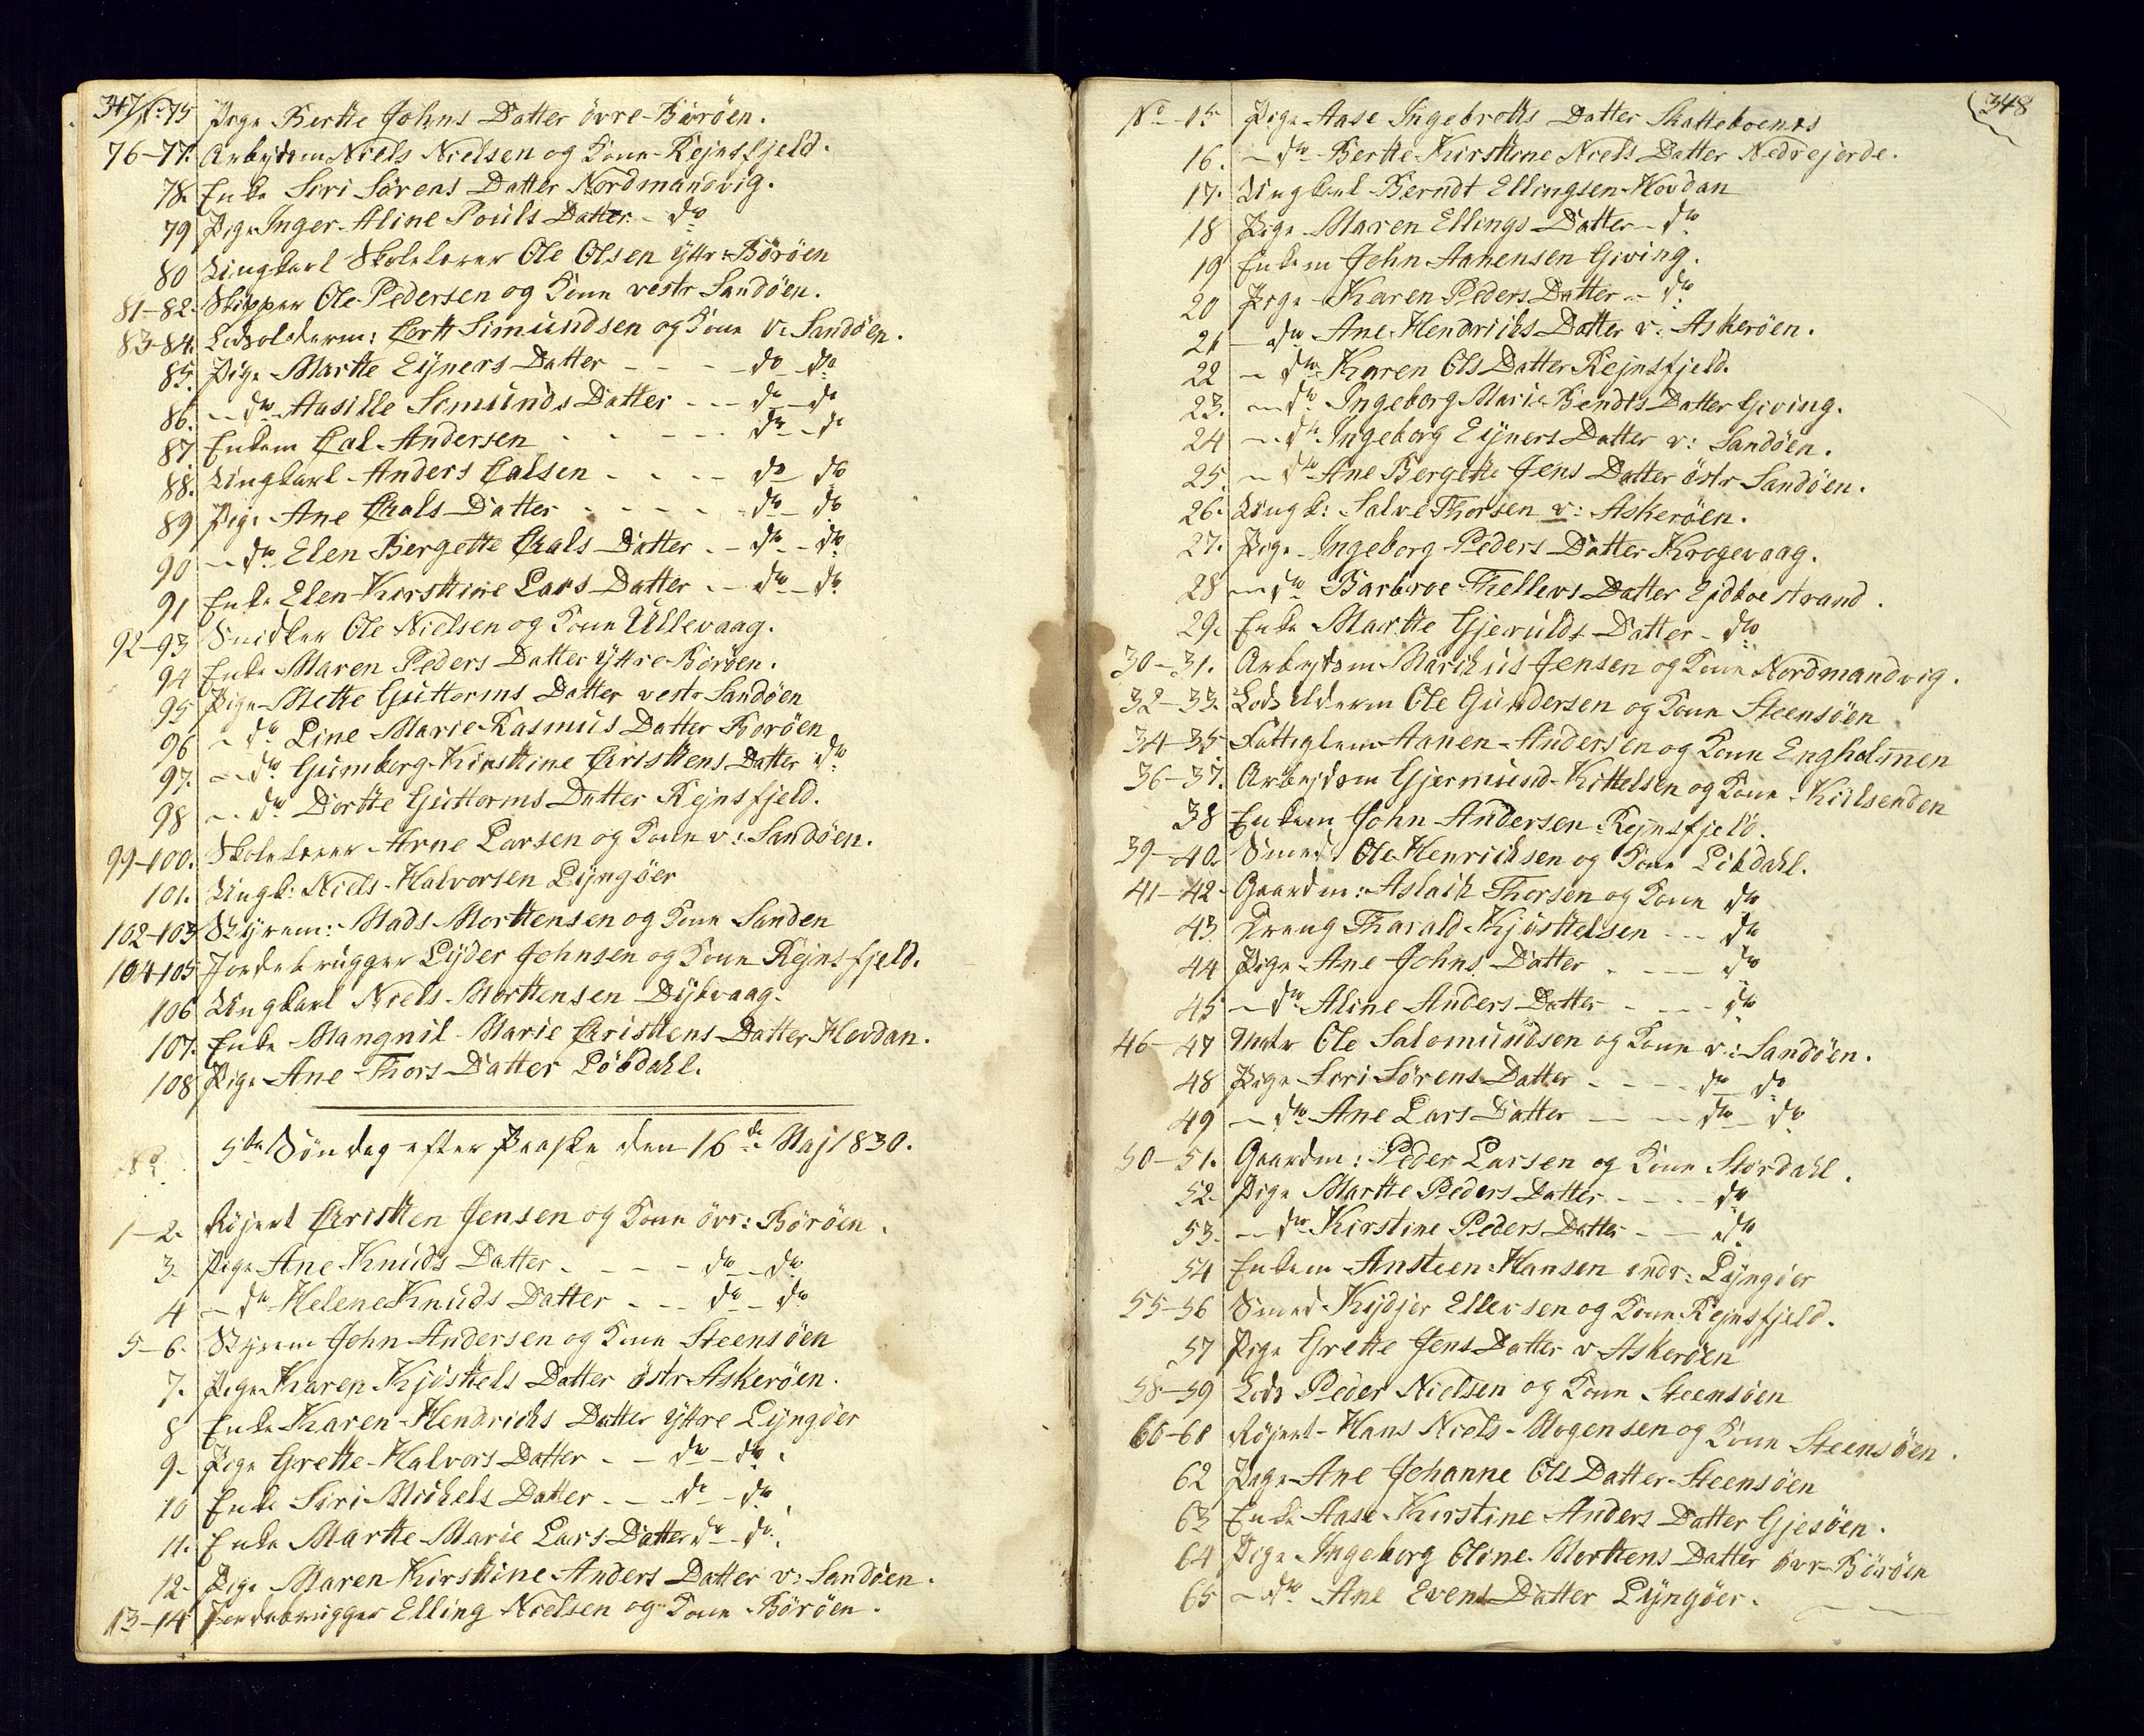 347/ No 75 Pige Berthe Johns Datter övre Böröen.
76-77. Arbejdsm Niels Nielsen og Kone Rejnsfjeld.
78. Enke Siri Sörens Datter Nordmandvig.
79 Pige Inger Aline Pouls Datter - do
80 Ungkarl Skolelerer Ole Olsen yttr: Böröen
81-82. Skipper Ole Pedersen og Kone vestr Sandöen.
83-84. Lodsolderm: Cort Simundsen og Kone v: Sandöen.
85. Pige Marthe Eyners Datter - - - - do do
86. - do Aasille Simunds Datter - - do - do
87 Enkem Cal Andersen - - - - do - do
88. Ungkarl Anders Calsen - - - - do do
89 Pige Ane Cals Datter - - - - do - do
90 - do Elen Bergette Cals Datter - - do - do
91 Enke Elen Kirstine Lars Datter - - do - do
92-93 Snidker Ole Nielsen og Kone Ullevaag.
94 Enke Maren Peders Datter Yttre Böröen.
95 Pige Mette Guttorms Datter vestr Sandöen
96 - do Line Marie Rasmus Datter Boröen
97. - do Gumborg Kirstine Cristens Datter do
98 - do Dorthe Guttorms Datter Rejnsfjeld.
99-100. Skolelerer Arne Larsen og Kone v: Sandöen.
101. Ungk: Niels Halvorsen Lyngöer
102-103 Styrem: Mads Mortensen og Kone Sanden
104-105 Jordebrugger Lyder Johnsen og Kone Rejnsfjeld.
106 Ungkarl Niels Mortensen Dybvaag.
107. Enke Mangnil Marie Cristens Datter Hovdan.
108 Pige Ane Thors Datter Löbdahl.
No 5te Söndag efter Paaske den 16de Maj 1830.
1-2. Röjert Cristen Jensen og Kone övr: Böröen.
3. Pige Ane Knuds Datter - - - - do - do
4 - do Helene Knuds Datter - - - do - do
5-6. Styrem John Andersen og Kone Steensöen
7. Pige Karen Kjöstels Datter östr Askeröen.
8 Enke Karen Hendrichs Datter Yttre Lyngöer
9. Pige Grethe Halvors Datter - - do - do.
10 Enke Siri Michels Datter - - - do - do.
11. Enke Marthe Marie Lars Datter do - do.
12. Pige Maren Kirstine Anders Datter v: Sandöen.
13-14 Jordebrugger Elling Nielsen og Kone Böröen.
348
No -15 Pige Aase Ingebrets Datter Skatteboenes
16. - do Berthe Kirstine Niels Datter Nedrejorde.
17. Ungkarl Berndt Ellingsen Hovdan
18 Pige Maren Ellings Datter - do
19 Enkem John Aanensen Giving.
20 Pige Karen Peders Datter - do
21 - do Ane Hendrichs Datter v: Askeröen.
22 - do Karen Ols Datter Rejnsfjeld.
23. - do Ingeborg Marie Bendts Datter Giving.
24 - do Ingeborg Eyners Datter v: Sandöen.
25. - do Ane Bergette Jens Datter östr Sandöen.
26. Ungk: Salve Thorsen v: Askeröen.
27. Pige Ingeborg Peders Datter Krogevaag.
28 - do Barbroe Thellevs Datter Ejdboe strand.
29. Enke Marthe Gjerulds Datter - do
30-31. Arbejdsm Marchus Jensen og Kone Nordmandvig.
32-33. Lods Alderm Ole Gundersen og Kone Steensöen
34-35 Fattiglem Aanen Andersen og Kone Engholmen
36-37. Arbejdsm Gjermund Kittelsen og Kone Kiilsenden
38 Enkem John Andersen Rejnsfjeld.
39-40. Smed Ole Henrichsen og Kone Löbdahl.
41-42. Gaardm: Aslach Thorsen og Kone do
43. Dreng Tharald Kjöstelsen - - do
44 Pige Ane Johns Datter - - - do
45 - do Aline Anders Datter - - - do
46-47 Matr Ole Salomundsen og Kone v: Sandöen.
48 Pige Siri Sörens Datter - - - - do do
49 - do Ane Lars Datter - - - do do
50-51. Gaardm: Peder Larsen og Kone Stördahl.
52. Pige Marthe Peders Datter - - - do
53. - do Kirstine Peders Datter - - do
54 Enkem Ansteen Hansen indr: Lyngöer
55-56 Smed Kydjer Ellevsen og Kone Rejnsfjeld.
57 Pige Grethe Jens Datter v Askeröen
58-59 Lods Peder Nielsen og Kone Steensöen
60-61 Röjert Hans Niels Mogensen og Kone Steensöen.
62 Pige Ane Johanne Ols Datter Steensöen
63 Enke Aase Kirstine Anders Datter Gjesöen.
64 Pige Ingeborg Oline Mortens Datter övr Böröen
65 - do Ane Evens Datter Lyngöer.